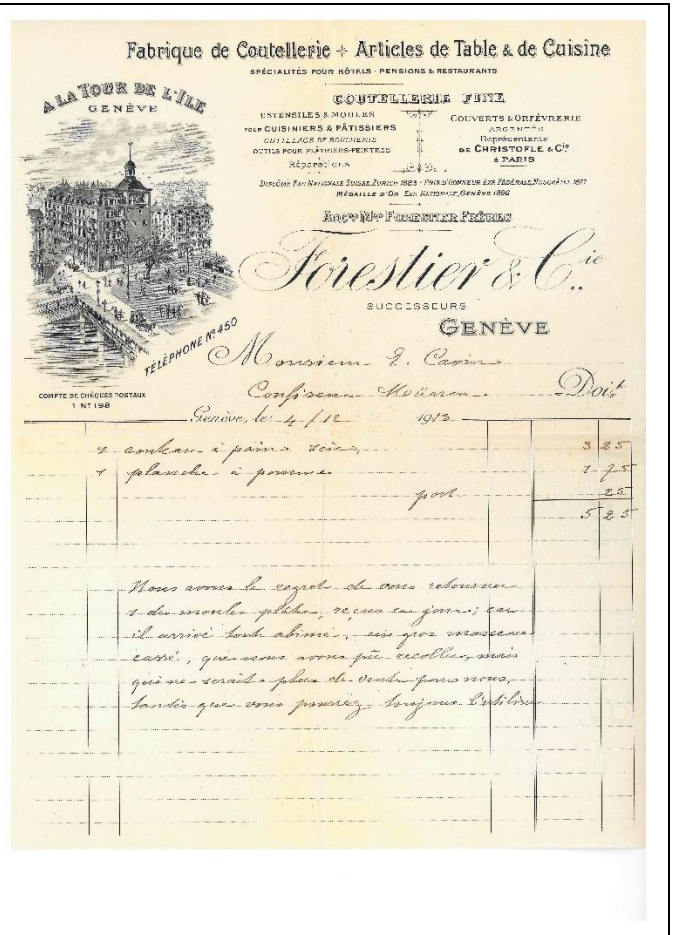 Fabrique de Coutellerie + Articles de Table & de Cuisine
SPÉCIALITÉS POUR HÔTELS - PENSIONS & RESTAURANTS
A LA TOUR DE L'ILE
GENÈVE
COUTELLERIE FINE
USTENSILES & MOULES
POUR CUISINIERS & PÂTISSIERS
OUTILLAGE DE BOUCHERIE
OUTILS POUR PLÂTRIERS-PEINTRES
Réparations
COUVERTS & ORFÈVRERIE
ARGENTÉS
Représentants
DE CHRISTOFLE & Cie
à PARIS
DIPLÔME EXP. NATIONALE SUISSE, ZURICH 1883 - PRIX D'HONNEUR EXP. FÉDÉRALE, NEUCHÂTEL 1877
MÉDAILLE D'OR EXP. NATIONALE, GENÈVE 1896
ANCne Mon FORESTIER FRÈRES
Forestier & Cie
SUCCESSEURS
GENÈVE
TÉLÉPHONE No 450
COMPTE DE CHÈQUES POSTAUX
1 No 198
Monsieur E.
Confiseur Doit
Genève, le 4/12 1912
1 couteau à pain scie, 3 25
1 planche à pommes 1 75
port 25
5 25
Nous avons le regret de vous retourner
1 des moules plâtre, reçus ce jour; car
il arrivé tout abimé, un gros morceau
cassé, que nous avons pu recoller, mais
qui ne serait plus de vente pour nous,
tandis que vous pourrez toujours l'utiliser